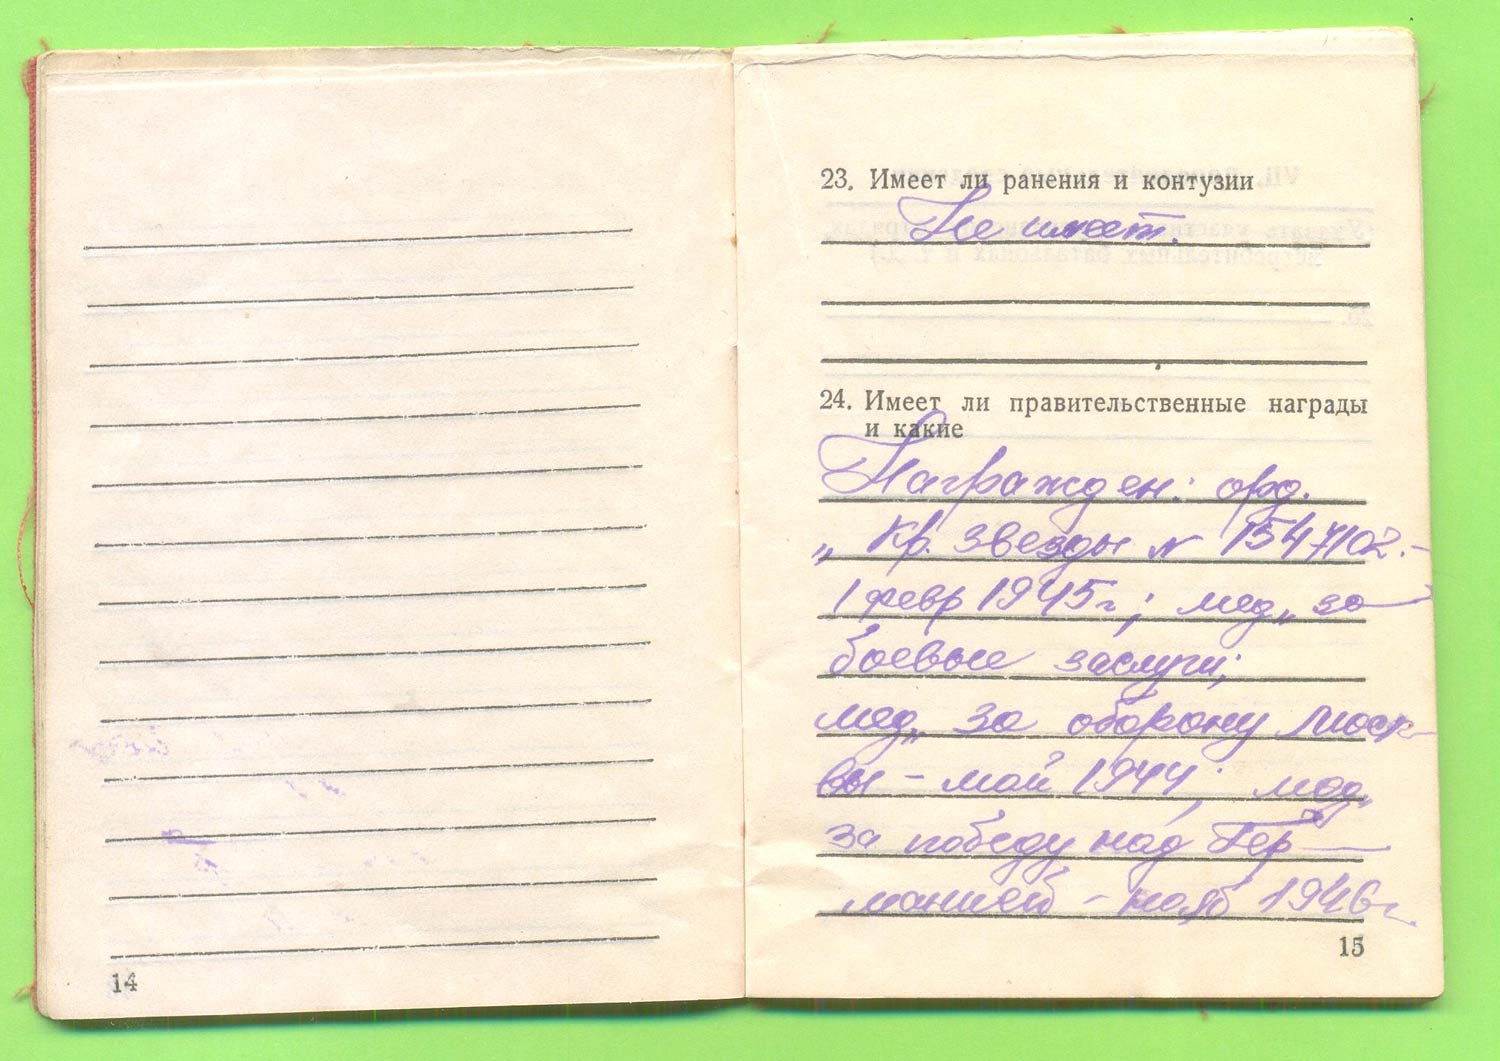 14
23. Имеет ли ранения и контузии
Не имеет.
24. Имеет ли правительственные награды
и какие
Награжден: орд.
„ Кр. звезды № 1547102. -
1 февр 1945 г; мед „ за
боевые заслуги;
мед „ за оборону Моск-
вы - май 1944; мед „
за победу над Гер-
манией - нояб 1946 г.
15